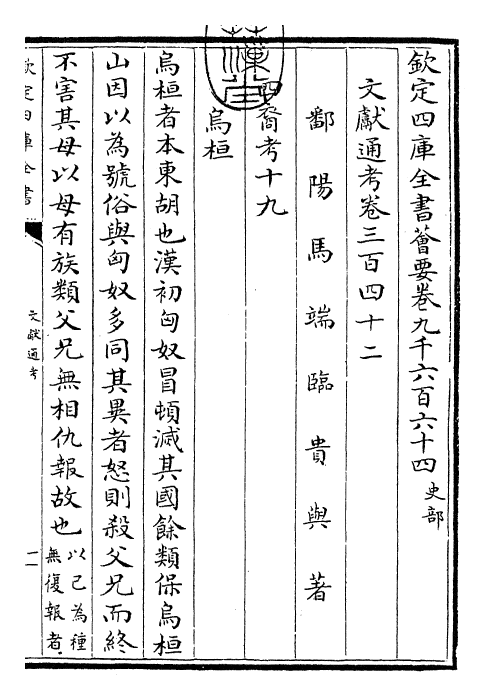 欽定四庫全書薈要卷九千六百六十四 史部
文獻通考卷三百四十二
鄱陽馬端臨貴與著
四裔考十九
烏桓
烏桓者本東胡也漢初匈奴冒頓滅其國餘類保烏桓
山因以為號俗與匈奴多同其異者怒則殺父兄而終
不害其母以母有族類父兄無相仇報故也以己為種
無復報者
欽定四庫全書
文獻通考
一